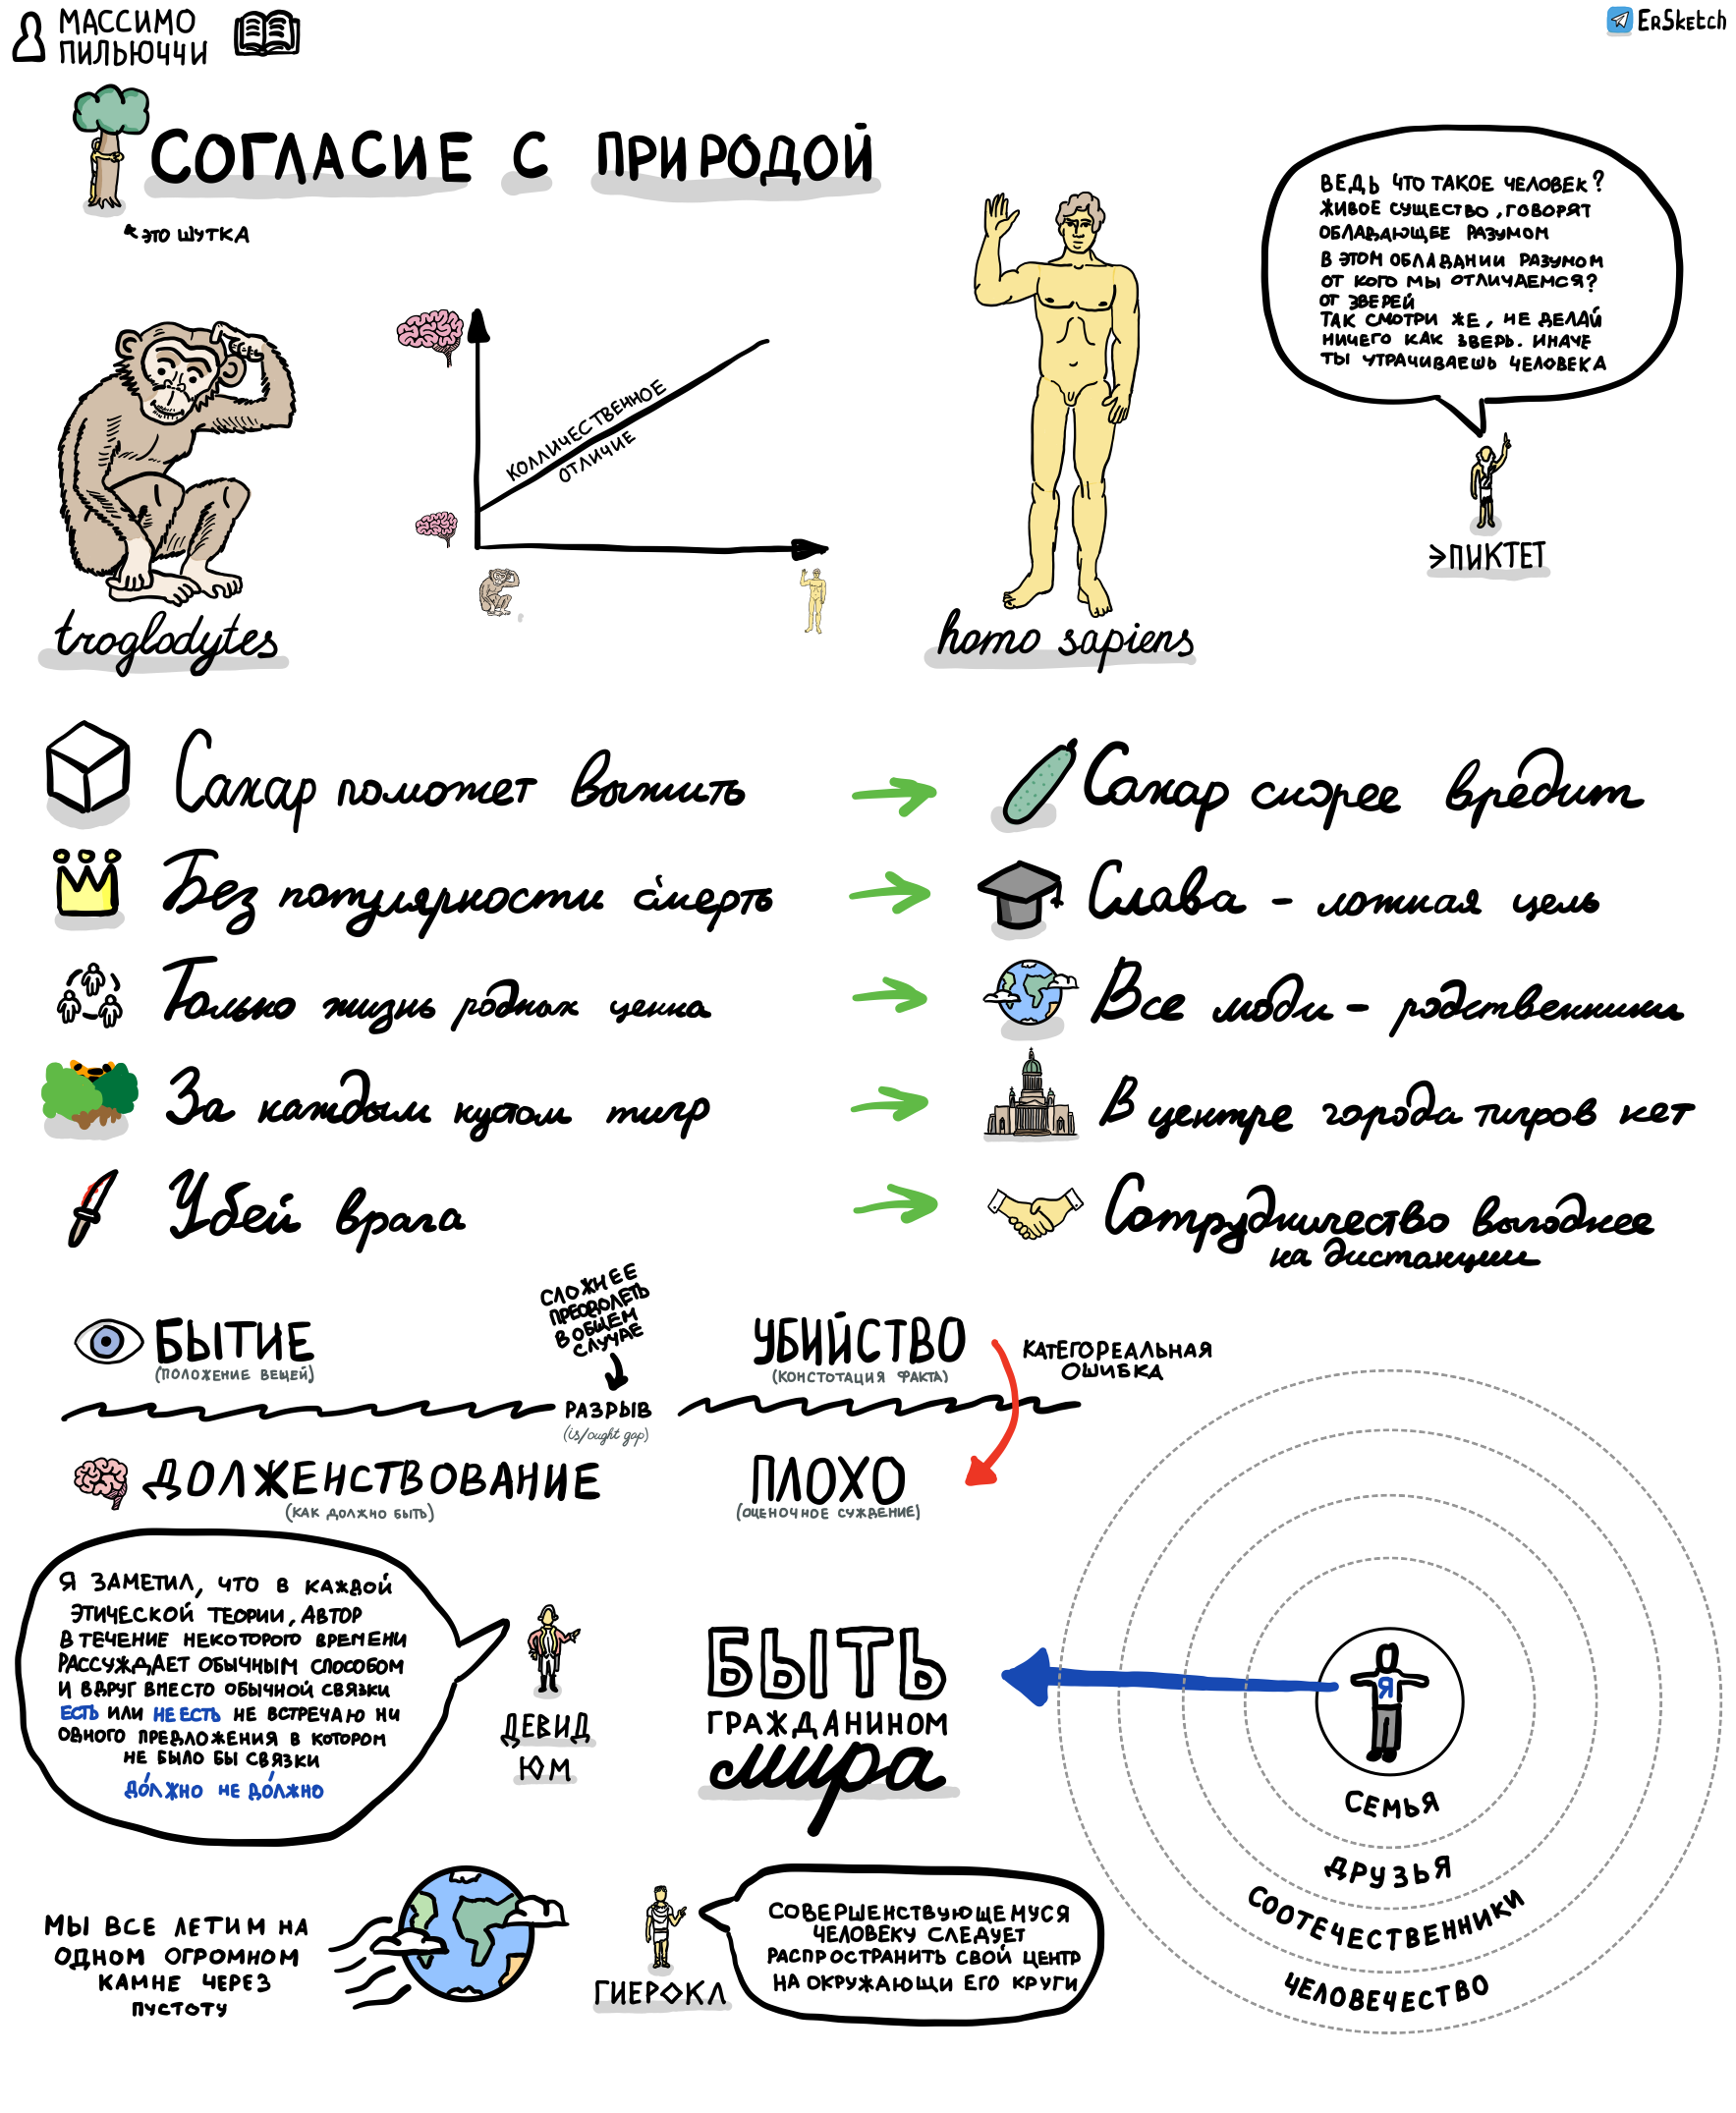 МАССИМО
ПИЛЬЮЧЧИ
ErSketch
СОГЛАСИЕ С ПРИРОДОЙ
ЭТО ШУТКА
ВЕДЬ ЧТО ТАКОЕ ЧЕЛОВЕК?
ЖИВОЕ СУЩЕСТВО, ГОВОРЯТ
ОБЛАДАЮЩЕЕ РАЗУМОМ
В ЭТОМ ОБЛАДАНИИ РАЗУМОМ
ОТ КОГО МЫ ОТЛИЧАЕМСЯ?
ОТ ЗВЕРЕЙ
ТАК СМОТРИ ЖЕ, НЕ ДЕЛАЙ
НИЧЕГО КАК ЗВЕРЬ. ИНАЧЕ
ТЫ УТРАЧИВАЕШЬ ЧЕЛОВЕКА
ЭПИКТЕТ
КОЛЛИЧЕСТВЕННОЕ
ОТЛИЧИЕ
troglodytes
homo sapiens
Сахар поможет выжить
Сахар скорее вредит
Без популярности смерть
Слава - ложная цель
Только жизнь родных ценна
Все люди - родственники
За каждым кустом тигр
В центре города тигров нет
Убей врага
Сотрудничество выгоднее
на дистанции
СЛОЖНЕЕ
ПРЕОДОЛЕТЬ
В ОБЩЕМ
СЛУЧАЕ
БЫТИЕ
(ПОЛОЖЕНИЕ ВЕЩЕЙ)
УБИЙСТВО
(КОНСТОТАЦИЯ ФАКТА)
КАТЕГОРЕАЛЬНАЯ
ОШИБКА
РАЗРЫВ
(is/ought gap)
ДОЛЖЕНСТВОВАНИЕ
(КАК ДОЛЖНО БЫТЬ)
ПЛОХО
(ОЦЕНОЧНОЕ СУЖДЕНИЕ)
Я ЗАМЕТИЛ, ЧТО В КАЖДОЙ
ЭТИЧЕСКОЙ ТЕОРИИ, АВТОР
В ТЕЧЕНИЕ НЕКОТОРОГО ВРЕМЕНИ
РАССУЖДАЕТ ОБЫЧНЫМ СПОСОБОМ
И ВДРУГ ВМЕСТО ОБЫЧНОЙ СВЯЗКИ
ЕСТЬ ИЛИ НЕ ЕСТЬ НЕ ВСТРЕЧАЮ НИ
ОДНОГО ПРЕДЛОЖЕНИЯ В КОТОРОМ
НЕ БЫЛО БЫ СВЯЗКИ
ДО́ЛЖНО НЕ ДО́ЛЖНО
ДЕВИД
ЮМ
БЫТЬ
ГРАЖДАНИНОМ
мира
Я
СЕМЬЯ
ДРУЗЬЯ
СООТЕЧЕСТВЕННИКИ
ЧЕЛОВЕЧЕСТВО
МЫ ВСЕ ЛЕТИМ НА
ОДНОМ ОГРОМНОМ
КАМНЕ ЧЕРЕЗ
ПУСТОТУ
ГИЕРОКЛ
СОВЕРШЕНСТВУЮЩЕМУСЯ
ЧЕЛОВЕКУ СЛЕДУЕТ
РАСПРОСТРАНИТЬ СВОЙ ЦЕНТР
НА ОКРУЖАЮЩИ ЕГО КРУГИ